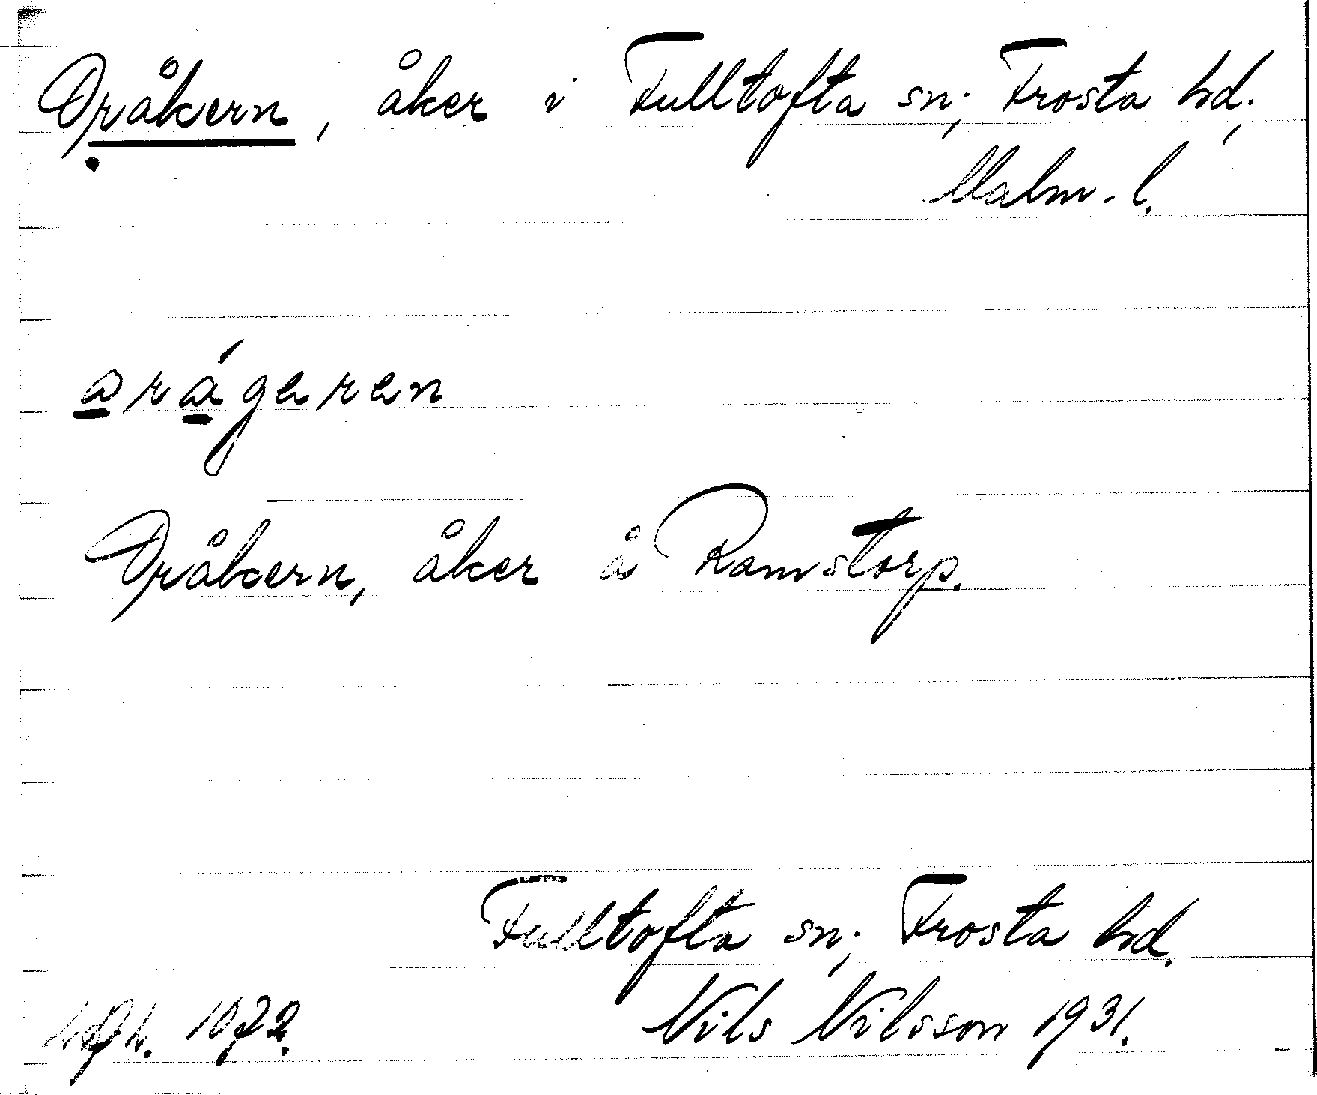 Oråkern, åker i Fulltofta sn; Frosta hd;
Malm. l.
arágeren
Oråkern, åker å Ramstorp.
Fulltofta sn; Frosta hd.
Nils Nilsson 1931.